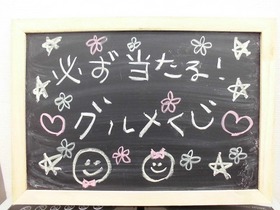 必ず当たる!
グルメくじ